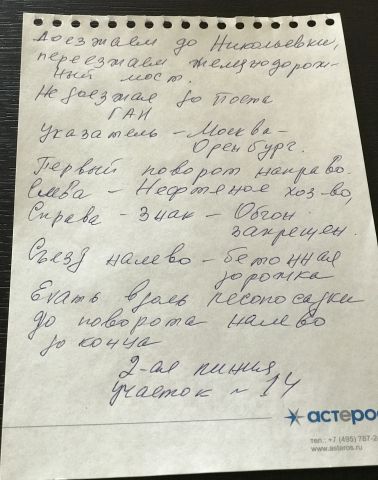 Доезжаем до Никольевки,
переезжаем железнодорож-
ный мост.
Не доезжая до поста
ГАИ
Указатель - Москва-
Оренбург.
Первый поворот направо.
Слева - Нефтяное хоз-во,
Справа - Знак - Обгон
запрещен.
Съезд налево - бетонная
дорожка
Ехать вдоль лесопосадки
до поворота налево
до конца
2-ая линия
участок ~ 14
астерос
тел.: +7 (495) 787-2
www.asteros.ru